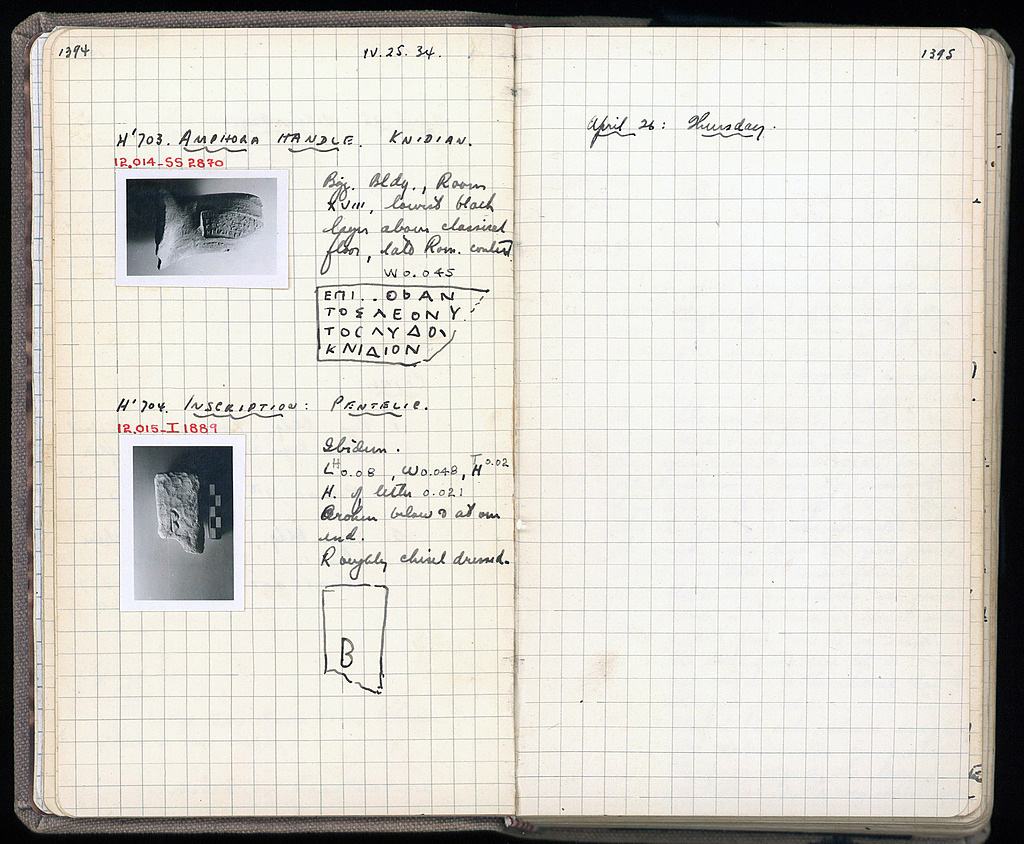 1394
IV. 25. 34.
H'703. AMPHORA HANDLE. KNIDIAN.
12.014-SS 2870
Bldy., Room
XVIII, lowest black
layer above classical
floor, late Rom. context
W 0.045
ΕΠΙ..ΟΦΑΝ
ΤΟΣ ΛΕΟΝΥ
ΤΟC ΛΥΔΟΙ
ΚΝΙΔΙΟΝ
H'704. INSCRIPTION: PENTELIC.
12.015-I 1889
Ibidem.
L H 0.08, W 0.048, H T 0.02
H. of letter 0.021
Broken below & at one
end.
Roughly chisel dressed.
B
1395
April 26: Thursday.